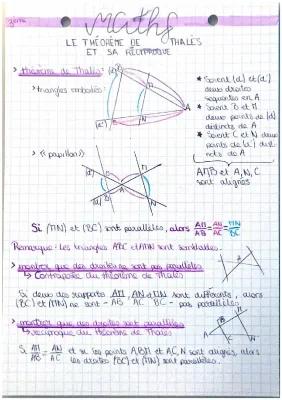 3ème
Maths
LE THÉORÈME DE THALÈS
ET SA RÉCIPROQUE
> théorème de Thalès:
> triangles emboîtés:
* Soient (d) et (d')
deux droites
sécantes en A
* Soient B et M
deux points de (d)
distincts de A
* Soient C et N deux
points de (d') dis-
tincts de A
A, M, B et A, N, C
sont alignés
> « papillon »
Si (MN) et (BC) sont parallèles, alors AM/AB = AN/AC = MN/BC
Remarque: Les triangles ABC et AMN sont semblables.
> montrer que des droites ne sont pas parallèles
↳ Contraposée du théorème de Thalès
Si deux des rapports AM/AB, AN/AC et MN/BC sont différents, alors
(BC) et (MN) ne sont pas parallèles
> montrer que des droites sont parallèles
↳ réciproque du théorème de Thalès
Si AM/AB = AN/AC et si les points A, B, M et A, C, N sont alignés, alors
les droites (BC) et (MN) sont parallèles.